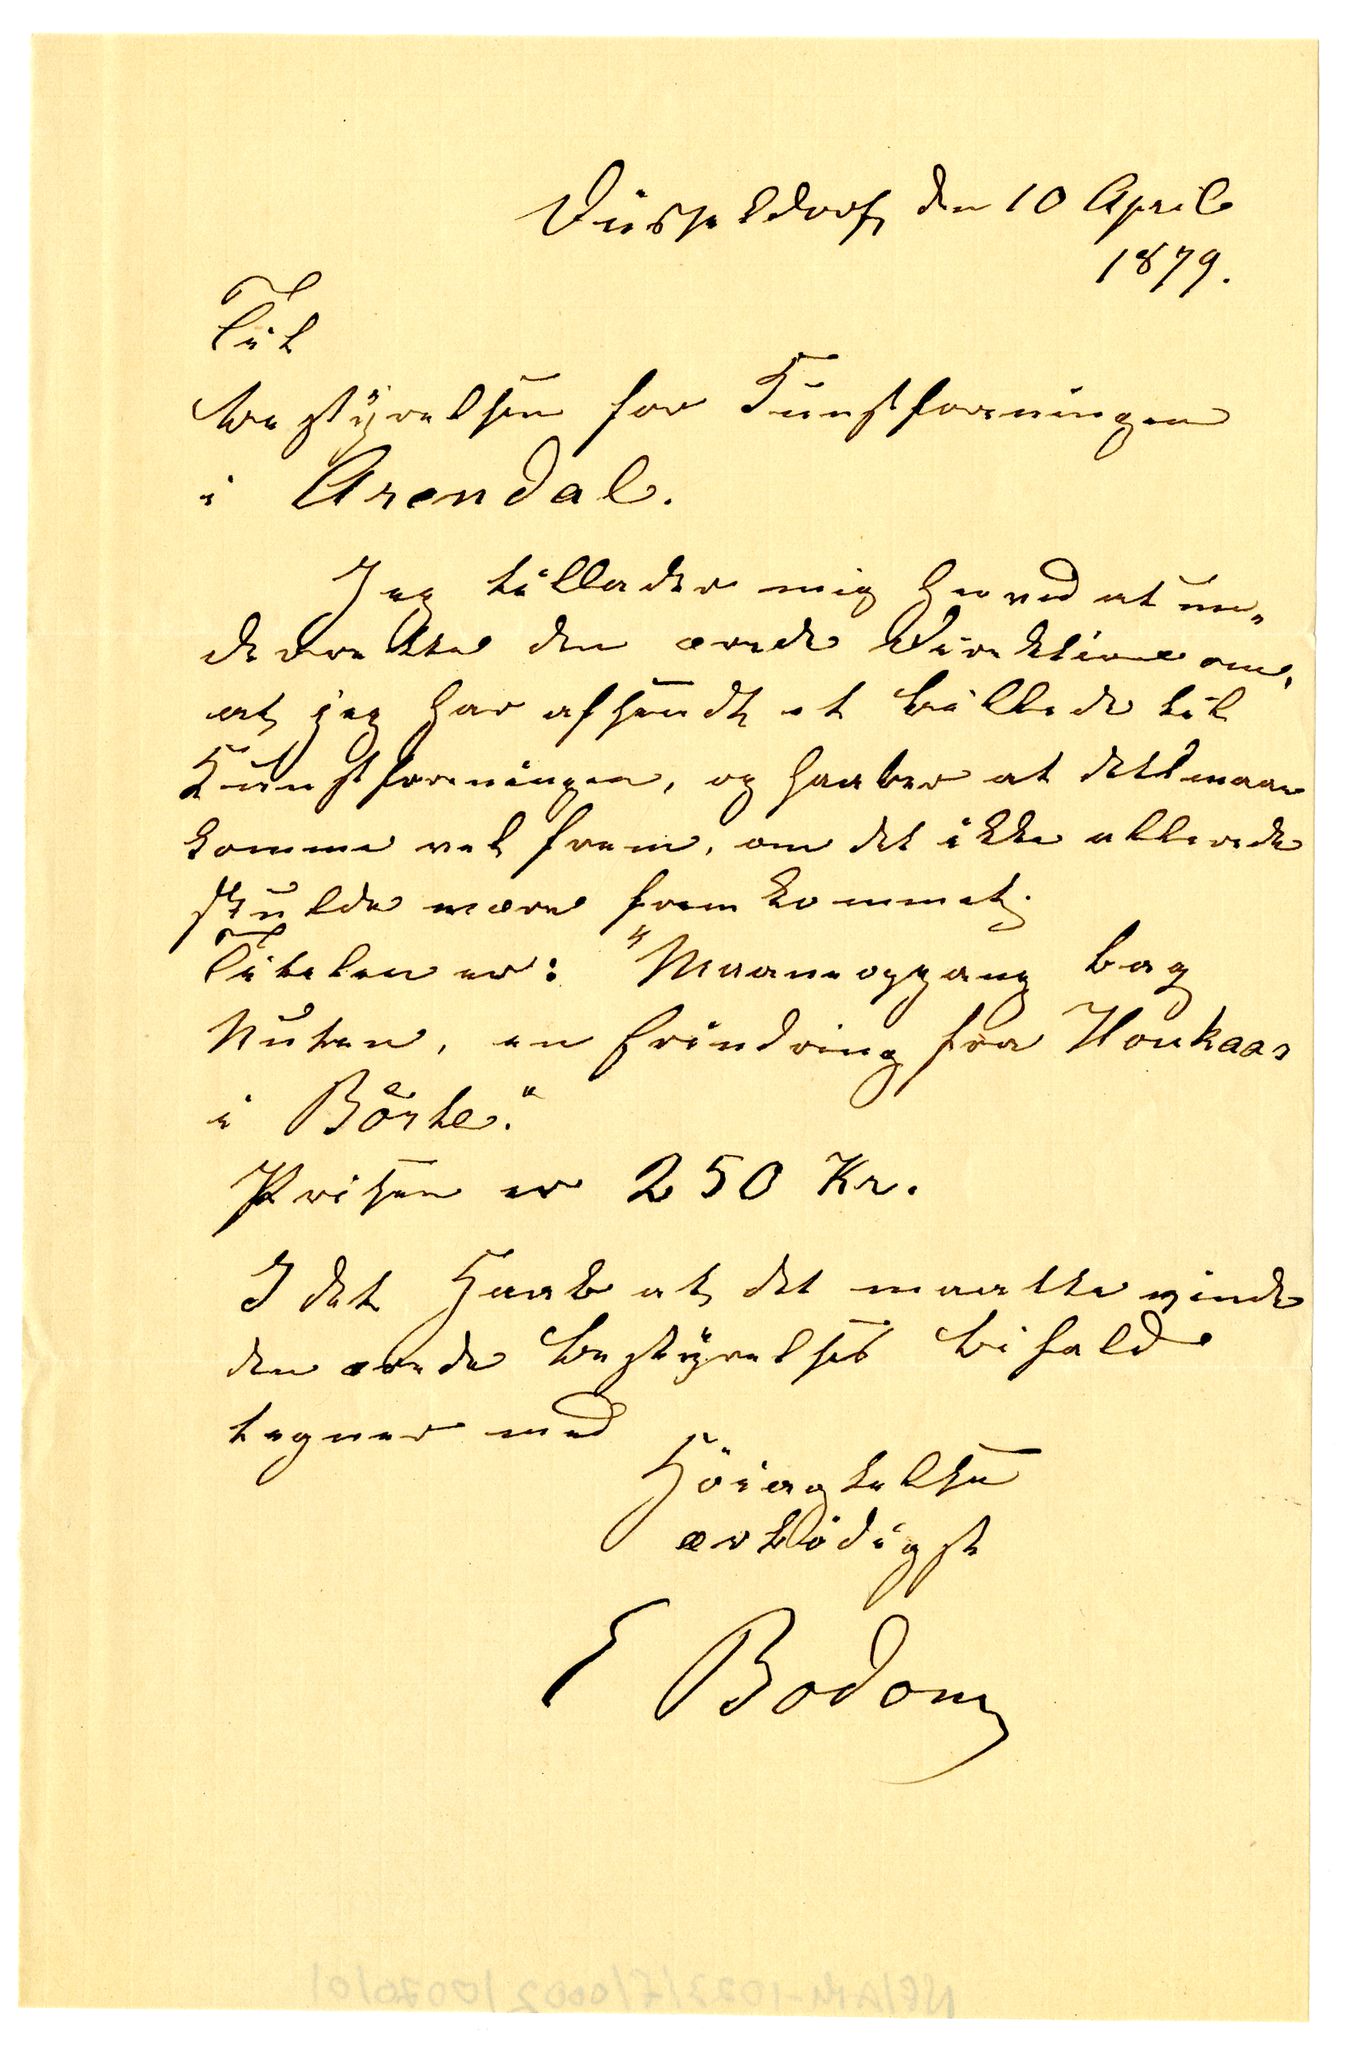 Düsseldorf, den 10 April
1879.
Til
bestyrelsen for Kunstforeningen
i Arendal.
Jeg tillader mig herved at un-
derrette den ærede Direktion om,
at jeg har afsendt et billede til
Kunstforeningen, og haaber at det maa
komme vel frem, om det ikke allerede
skulde være fremkommet.
Titelen er: "Maaneopgang bag
Nuten, en Erindring fra Houkaas
i Börte."
Prisen er 250 Kr.
I det Haab at det maatte vinde
den ærede bestyrelses bifald
tegner med
Höiagtelse
ærbödigst
E Bodom